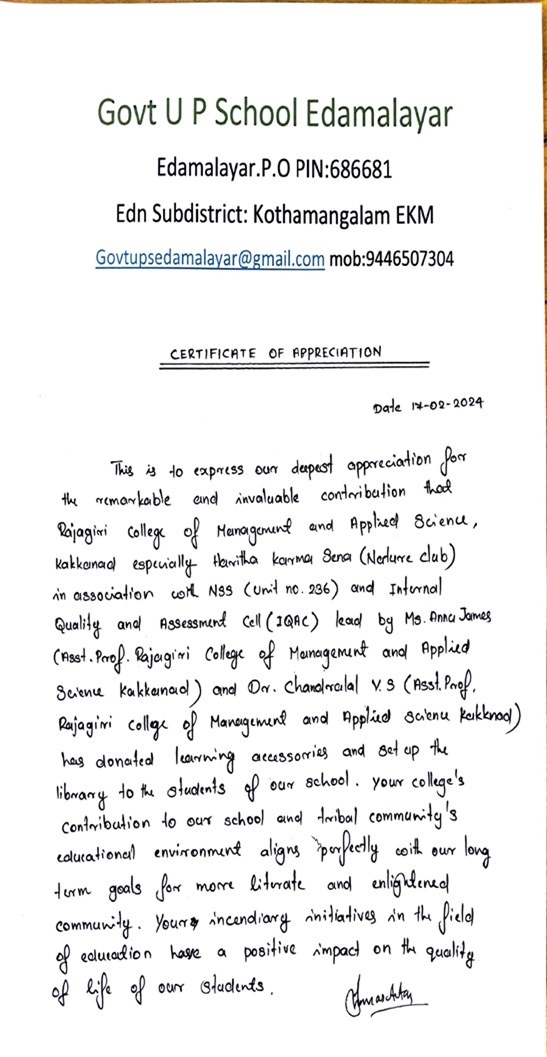 Govt U P School Edamalayar
Edamalayar.P.O PIN:686681
Edn Subdistrict: Kothamangalam EKM
Govtupsedamalayar@gmail.com mob:9446507304
CERTIFICATE OF APPRECIATION
Date 17-02-2024
This is to express our deepest appreciation for
the remarkable and invaluable contribution that
Rajagiri College of Management and Applied Science,
Kakkanad especially Haritha Karma Sena (Nature club)
in association with NSS (Unit no. 236) and Internal
Quality and Assessment Cell (IQAC) lead by Ms. Anna James
(Asst. Prof. Rajagiri College of Management and Applied
Science Kakkanad) and Dr. Chandralal V. S (Asst. Prof.
Rajagiri College of Management and Applied Science Kakknad)
has donated learning accessories and set up the
library to the students of our school. Your college's
contribution to our school and tribal community's
educational environment aligns perfectly with our long
term goals for more literate and enlightened
community. Your incendiary initiatives in the field
of education have a positive impact on the quality
of life of our students.